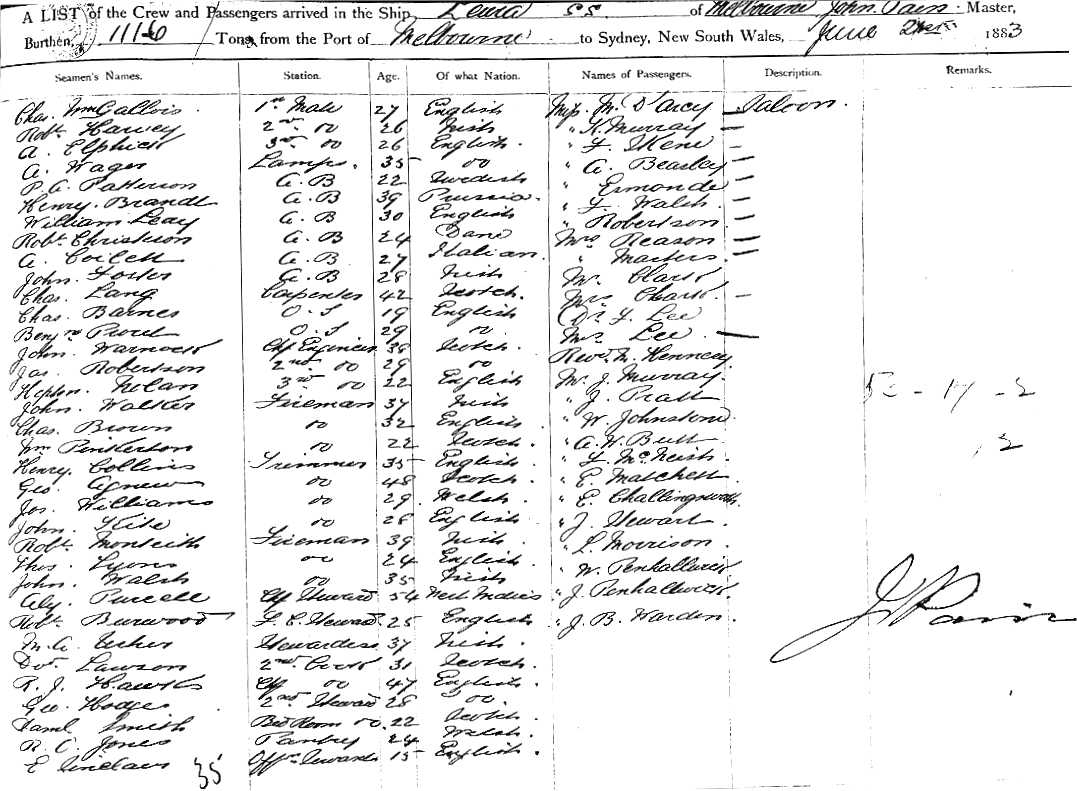 A LIST of the Crew and Passengers arrived in the Ship, Leura SS of Melbourne John Pain Master,
Burthen, 1116 Tons from the Port of Melbourne to Sydney, New South Wales, June 1883
Seamen's Names. Station. Age. Of what Nation. Names of Passengers. Description. Remarks.
Chas. Wm Gallois 1st Mate 27 English Miss M. D'Arcy Saloon
Robt Harvey 2nd Do 26 Irish " K. Murray —
A. Elphick 3rd Do 26 English " F. Skene —
A. Wager Lamps. 35 Do " A. Beasley —
P. A. Patterson A.B 22 Swedish " Esmonde —
Henry Brandt A.B 39 Prussia " F. Walsh —
William Leay A.B 30 English " Robertson —
Robt Christeson A.B 24 Dane Mrs Reason —
A. A.B 27 Italian " Masters —
John Foster A.B 28 Irish Mr. Clark
Chas. Lang Carpenter 42 Scotch. Mrs Clark —
Chas. Barnes O.S 19 English Dr. F. Lee
Benjn Prout O.S 29 Do Mrs Lee —
John Warnock Chf Engineer 38 Scotch. Revd. M. Kenney
Jas. Robertson 2nd Do 29 Do Mr. J. Murray
Nolan 3rd Do 22 English " J. Pratt
John Walker Fireman 37 Irish " W. Johnstone
Chas. Brown Do 32 English " A. W. Butt
Wm Pinkerton Do 22 Scotch " F. McNeish
Henry. Collins Trimmer 35 English " E. Matchett
Geo. Agnew Do 48 Scotch. " E. Challingsworth
Jos. Williams Do 29 Welsh " J. Stewart
John. Kite Do 28 English " L. Morrison
Robt Monteith Fireman 39 Irish " W. Penhallurick
Thos. Lyons Do 24 English " J. Penhallurick
John. Walsh Do 35 Irish " J. B. Warden
Purcell Chf Steward 54 West Indies
Robt Burwood F. C. Steward 25 English
M. A. Usher Stewardess 37 Irish
Lawson 2nd Cook 31 Scotch
R. J. Hawkes Chf Do 47 English
Geo. Hodges 2nd Steward 28 Do
Danl Smith Bed Room Do 22 Scotch
R. C. Jones Pantry 24 Welsh
E Sinclair Offrs Steward 15 English
35
J Pain